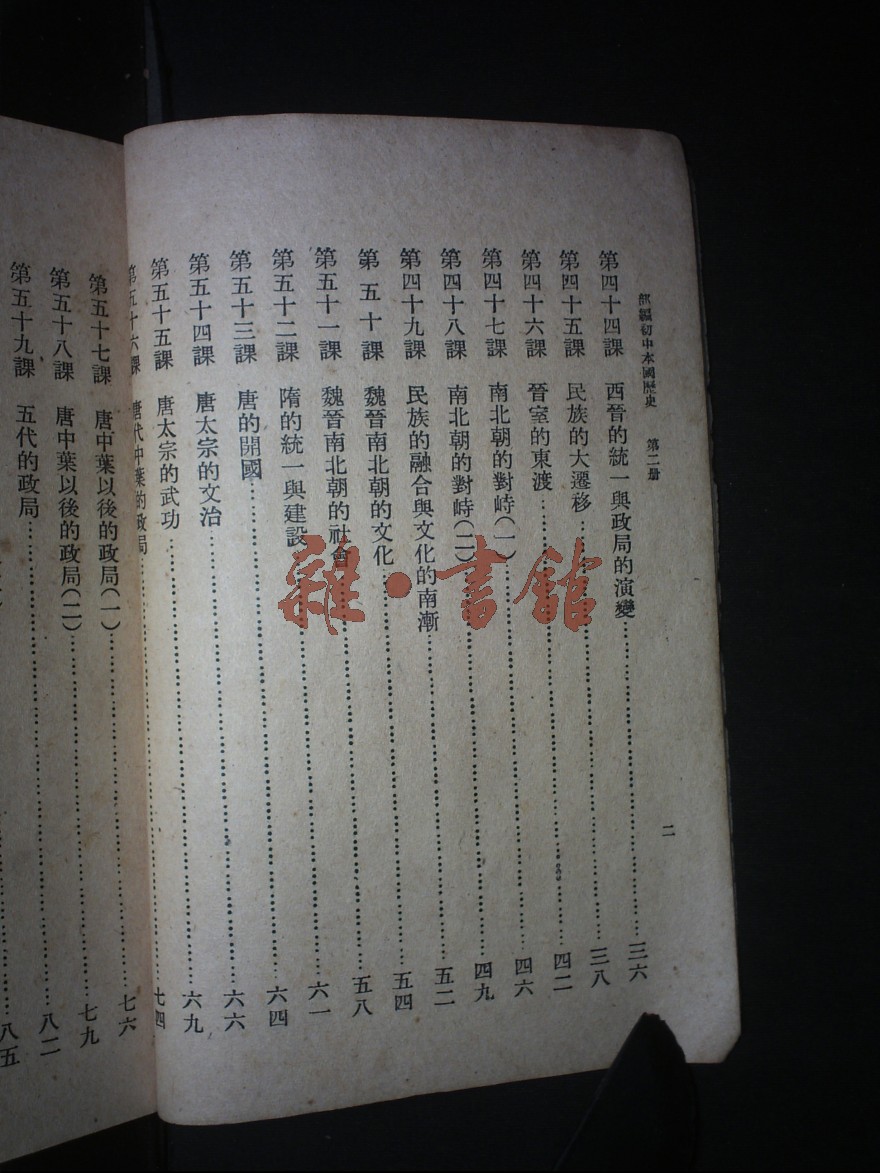 部編初中本國歷史 第二册
二
第四十四課 西晉的統一與政局的演變……三六
第四十五課 民族的大遷移……三八
第四十六課 晉室的東渡……四二
第四十七課 南北朝的對峙(一)……四六
第四十八課 南北朝的對峙(二)……四九
第四十九課 民族的融合與文化的南漸……五二
第五十課 魏晉南北朝的文化……五四
第五十一課 魏晉南北朝的社會……五八
第五十二課 隋的統一與建設……六一
第五十三課 唐的開國……六四
第五十四課 唐太宗的文治……六六
第五十五課 唐太宗的武功……六九
第五十六課 唐代中葉的政局……七四
第五十七課 唐中葉以後的政局(一)……七六
第五十八課 唐中葉以後的政局(二)……七九
第五十九課 五代的政局……八二
八五
雜·書館